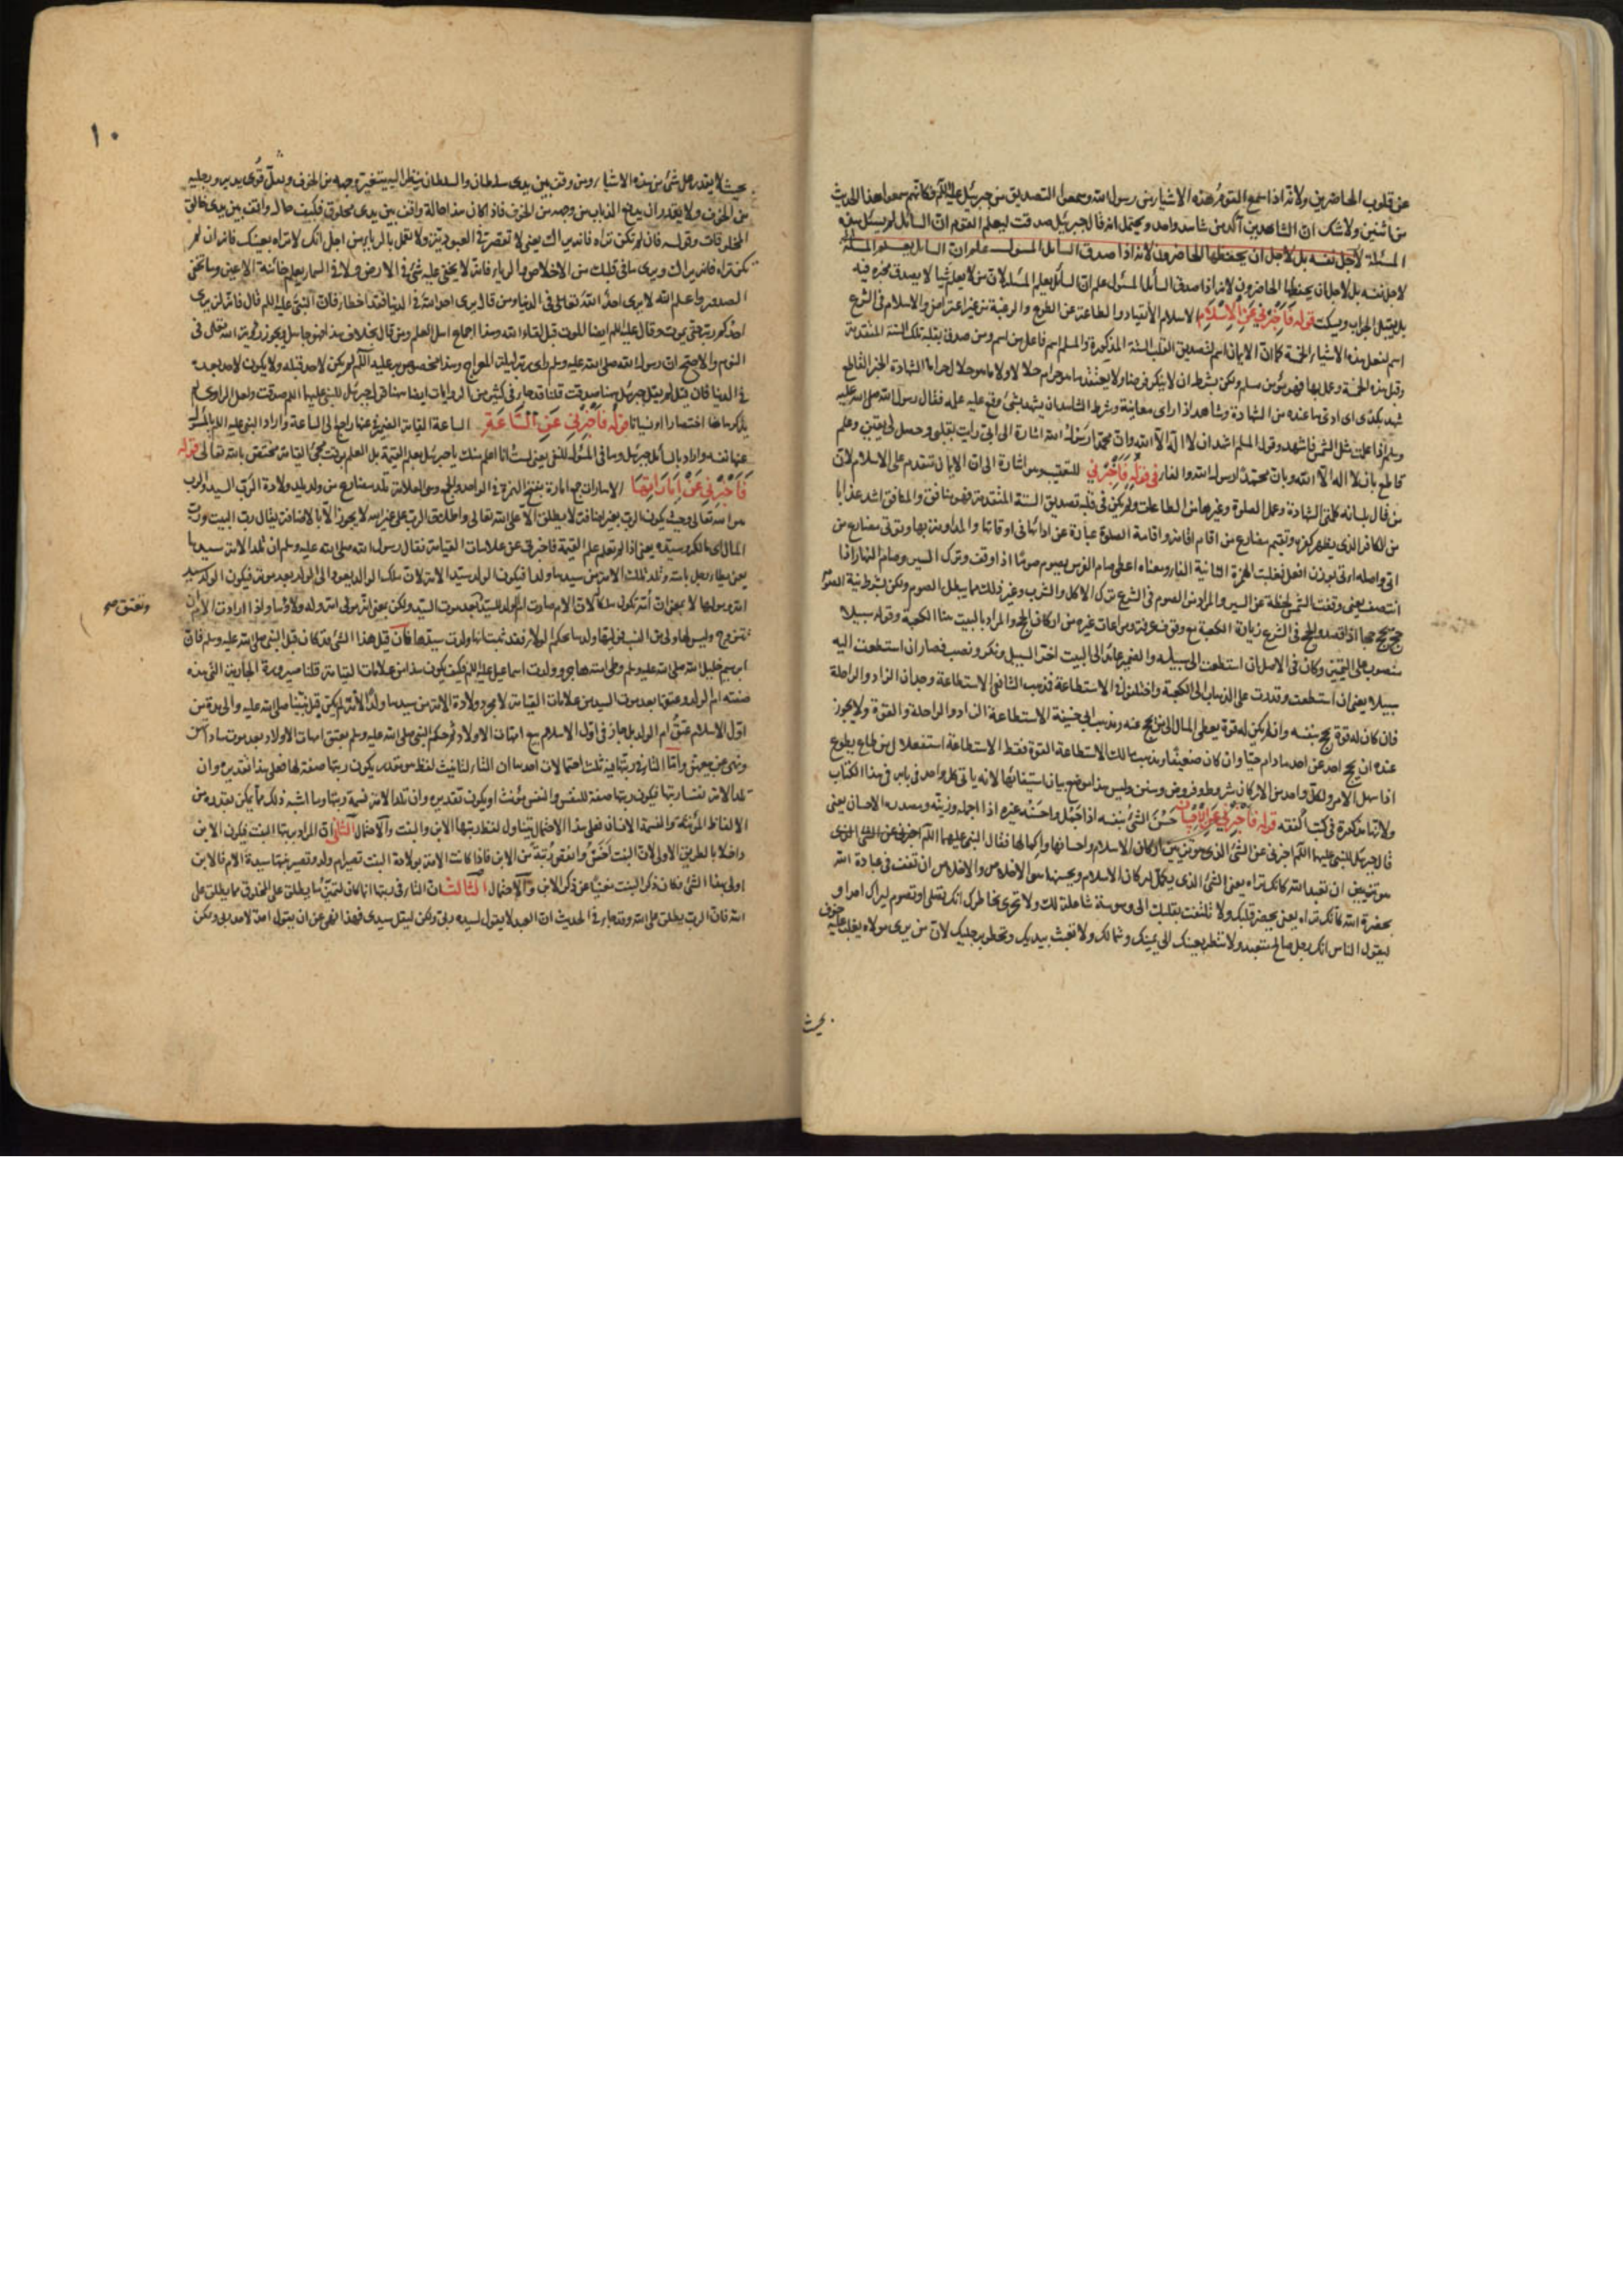 عن قلوب الحاضرين ولانه اذا سمع القوم هذه الاشياء من رسول الله وسمعوا التصديق من جبرئيل عليه السلام فكانهم سمعوا هذا الحديث
من اثنين ولا شك ان الشاهدين آكد من شاهد واحد ويحتمل انه قال جبرئيل صدقت ليعلم القوم ان السائل لم يسئل هذه
المسئلة لاجل نفسه بل لاجل ان يحفظها الحاضرون لانه اذا صدق السائل المسئول علم ان السائل يعلم المسئلة
لاجل نفسه بل لاجل ان يحفظها الحاضرون لانه اذا صدق السائل المسئول علم ان السائل يعلم المسئلة لان من لا يعلم شيئا لا يصدق مخبره فيه
بل يقبل الجواب ويسكت قوله فَاَخْبِرْني عَنِ الْاِسْلَامِ الاسلام الانقياد والطاعة عن الطوع والرغبة من غير اعتراض والاسلام في الشرع
اسم لفعل هذه الاشياء الخمسة كما ان الايمان اسم لتصديق القلب الستة المذكورة والمسلم اسم فاعل من اسلم ومن صدق بقلبه تلك الستة المتقدمة
وقبل هذه الخمسة وعمل بها فهو مؤمن مسلم ولكن بشرط ان لا ينكر فرضا ولا يعتقد ما هو حرام حلالا ولا ما هو حلال حراما الشهادة الخبر القاطع
شهد بكذا اي ادى ما عنده من الشهادة وشاهد اذا رأى معاينة وشرط الشاهد ان يشهد بشئ وقع عليه علمه فقال رسول الله صلى الله عليه
وسلم اذا علمت مثل الشمس فاشهد وقول المسلم اشهد ان لا اله الا الله وان محمدا رسول الله اشارة الى اني رأيت بقلبي وحصل لي يقين وعلم
قاطع بان لا اله الا الله وبان محمدا رسول الله والفاء في قوله فَاَخْبِرْني للتعقيب اشارة الى ان الايمان متقدم على الاسلام لان
من قال بلسانه كلمتي الشهادة وعمل الصلوة وغيرها من الطاعات ولم يكن في قلبه تصديق الستة المتقدمة فهو منافق والمنافق اشد عذابا
من الكافر الذي يظهر كفره وتقيم مضارع من اقام اقامة واقامة الصلوة عبارة عن ادائها في اوقاتها والمداومة بها وتؤتي مضارع من
آتى واصله اءتى بوزن افعل فقلبت الهمزة الثانية الفا ومعناه اعطى صام الفرس يصوم صوما اذا وقف وترك السير وصام النهار اذا
انتصف يعني وقفت الشمس لحظة عن السير والمراد من الصوم في الشرع ترك الاكل والشرب وغير ذلك مما يبطل الصوم ولكن بشرط نية الصوم
حج يحج حجا اذا قصد والحج في الشرع زيارة الكعبة مع وقوف عرفة ومراعات غيره من اركان الحج والمراد بالبيت هنا الكعبة وقوله سبيلا
منصوب على التمييز وكان في الاصل ان استطعت الى سبيله والضمير عائد الى البيت اخر السبيل ونكر ونصب فصار ان استطعت اليه
سبيلا يعني ان استطعت وقدرت على الذهاب الى الكعبة واختلفوا في الاستطاعة فمذهب الشافعي الاستطاعة وجدان الزاد والراحلة
فان كان له قوة يحج بنفسه وان لم يكن له قوة يعطي المال الى من يحج عنه ومذهب ابي حنيفة الاستطاعة الزاد والراحلة والقوة ولا يجوز
عنده ان يحج احد عن احد ما دام حيا وان كان ضعيفا ومذهب مالك الاستطاعة القوة فقط الاستطاعة استفعال من طاع يطوع
اذا سهل الامر ولكل واحد من الاركان شروط وفروض وسنن وليس هذا موضع بيان استيفائها لانه يأتي كل واحد في بابه في هذا الكتاب
ولانها مذكورة في كتب الفقه قوله فَاَخْبِرْني عَنِ الْاِحْسَانِ حَسُنَ الشئ بنفسه اذا جمل واحسنه غيره اذا اجمله وزينه ومصدره الاحسان يعني
قال جبرئيل للنبي عليهما السلام اخبرني عن الشئ الذي هو تزيين اركان الاسلام واحسانها واكمالها فقال النبي عليه السلام
هو ان تعبد الله كانك تراه يعني الشئ الذي يكمل اركان الاسلام ويحسنها هو الاخلاص والاخلاص ان تقف في عبادة الله
بحضرة الله كانك تراه يعني يحضر قلبك ولا تلتفت بقلبك الى وسوسة شاغلة لك ولا تجري بخاطرك انك تصلي او تصوم ليراك احد او
ليقول الناس انك رجل صالح متعبد ولا تنظر بعينك الى يمينك وشمالك ولا تعبث بيديك وتخطو برجليك لان من يرى مولاه يغلب عليه خوف
بحيث
١٠
بحيث لا يقدر على شئ من هذه الاشياء ومن وقف بين يدي سلطان والسلطان ينظر اليه يتغير وجهه من الخوف ويبطل قوى يديه ورجليه
من الخوف ولا يقدر ان يدفع الذباب من وجهه من الخوف فاذا كان هذا حالة واقف بين يدي مخلوق فكيف حال واقف بين يدي خالق
المخلوقات وقوله فان لم تكن تراه فانه يراك يعني لا تقصر في العبودية ولا تعمل بالرياء من اجل انك لا تراه بعينك فانه ان لم
تكن تراه فانه يراك ويرى ما في قلبك من الاخلاص والرياء فانه لا يخفى عليه شئ في الارض ولا في السماء يعلم خائنة الاعين وما تخفي
الصدور واعلم انه لا يرى احد الله تعالى في الدنيا ومن قال يرى احد الله في الدنيا فقد اخطأ فان النبي عليه السلام قال فانه لن يرى
احدكم ربه حتى يموت وقال عليه السلام ايضا الموت قبل لقاء الله وهذا اجماع اهل العلم ومن قال بخلاف هذا فهو جاهل ويجوز رؤية الله تعالى في
النوم والاصح ان رسول الله صلى الله عليه وسلم رأى ربه ليلة المعراج وهذا مخصوص به عليه السلام لم يكن لاحد قبله ولا يكون لاحد بعده
في الدنيا فان قيل لم يقل جبرئيل هنا صدقت قلنا قد جاء في كثير من الروايات ايضا هنا قول جبرئيل للنبي عليهما السلام صدقت ولعل الراوي لم
يذكر هاهنا اختصارا او نسيانا قوله فَاَخْبِرْني عَنِ السَّاعَةِ الساعة القيامة الضمير في عنها راجع الى الساعة واراد النبي عليه السلام بالمسئول
عنها نفسه واراد بالسائل جبرئيل وما في ما المسئول للنفي يعني لست انا اعلم منك يا جبرئيل بعلم القيمة بل العلم بوقت مجئ القيامة مختص بالله تعالى قوله
فَاَخْبِرْني عَنْ اَمَارَاتِهَا الامارات جمع امارة بفتح الهمزة في الواحد والجمع وهي العلامة تلد مضارع من ولد يلد ولادة الرب السيد والرب
من اسماء الله تعالى وحيث يكون الرب بغير اضافة لا يطلق الا على الله تعالى واطلاق الرب على غير الله لا يجوز الا بالاضافة يقال رب البيت ورب
المال اي مالكه وسيده يعني اذا لم تعلم علم القيمة فاخبرني عن علامات القيامة فقال رسول الله صلى الله عليه وسلم ان تلد الامة سيدها
يعني يطأ رجل امته وتلد تلك الامة من سيدها ولدا فيكون الولد سيد الامة لان ملك الوالد يعود الى الولد بعد موته فيكون الولد سيد
تتزوج وليس لها ولي من النسب فوليها ولدها بحكم الولاء فقد ثبت انها ولدت سيدها فان قيل هذا الشئ قد كان قبل النبي صلى الله عليه وسلم فان
ابرهيم خليل الله صلى الله عليه وسلم وطئ امته هاجر وولدت اسماعيل عليه السلام فكيف يكون هذا من علامات القيامة قلنا صيرورة الجارية التي هذه
صفته ام الولد وعتقها بعد موت السيد من علامات القيامة لا مجرد ولادة الامة من سيدها ولدا لانه لم يكن قبل نبينا صلى الله عليه والى مدة من
اول الاسلام عتق ام الولد بل جاز في اول الاسلام بيع امهات الاولاد ثم حكم النبي صلى الله عليه وسلم بعتق امهات الاولاد بعد موت ساداتهن
ونهى عن بيعهن واما التاء في ربتها فيه ثلث احتمالات احدها ان التاء لتأنيث لفظ مقدر يكون ربتها صفة لها فعلى هذا تقديره ان
تلد الامة نفسا ربتها فيكون ربتها صفة للنفس والنفس مؤنث او يكون تقديره وان تلد الامة نسمة ربتها وما اشبه ذلك مما يمكن تقديره من
الالفاظ المؤنثة والنسمة الانسان فعلى هذا الاحتمال يتناول لفظ ربتها الابن والبنت والاحتمال الثاني ان المراد بربتها البنت فيكون الابن
داخلا بالطريق الاولى لان البنت اخس وانقص رتبة من الابن فاذا كانت الامة بولادة البنت تصير ام ولد وتصير بنتها سيدة الام فالابن
اولى بهذا الشئ فكان ذكر البنت مغنيا عن ذكر الابن والاحتمال الثالث ان التاء في ربتها انما كان لتمييز ما يطلق على المخلوق مما يطلق على
الله فان الرب يطلق على الله وقد جاء في الحديث ان العبد لا يقول لسيده ربي ولكن ليقل سيدي فهذا النهي عن ان يقول احد لاحد ربي ولكن
وتعتق صح